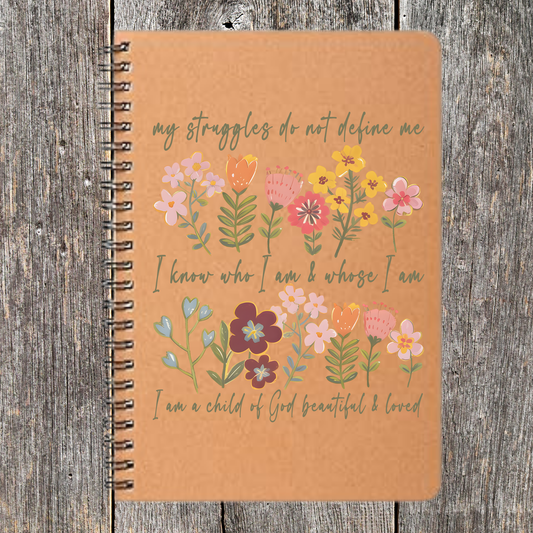 my struggles do not define me
I know who I am & whose I am
I am a child of God beautiful & loved